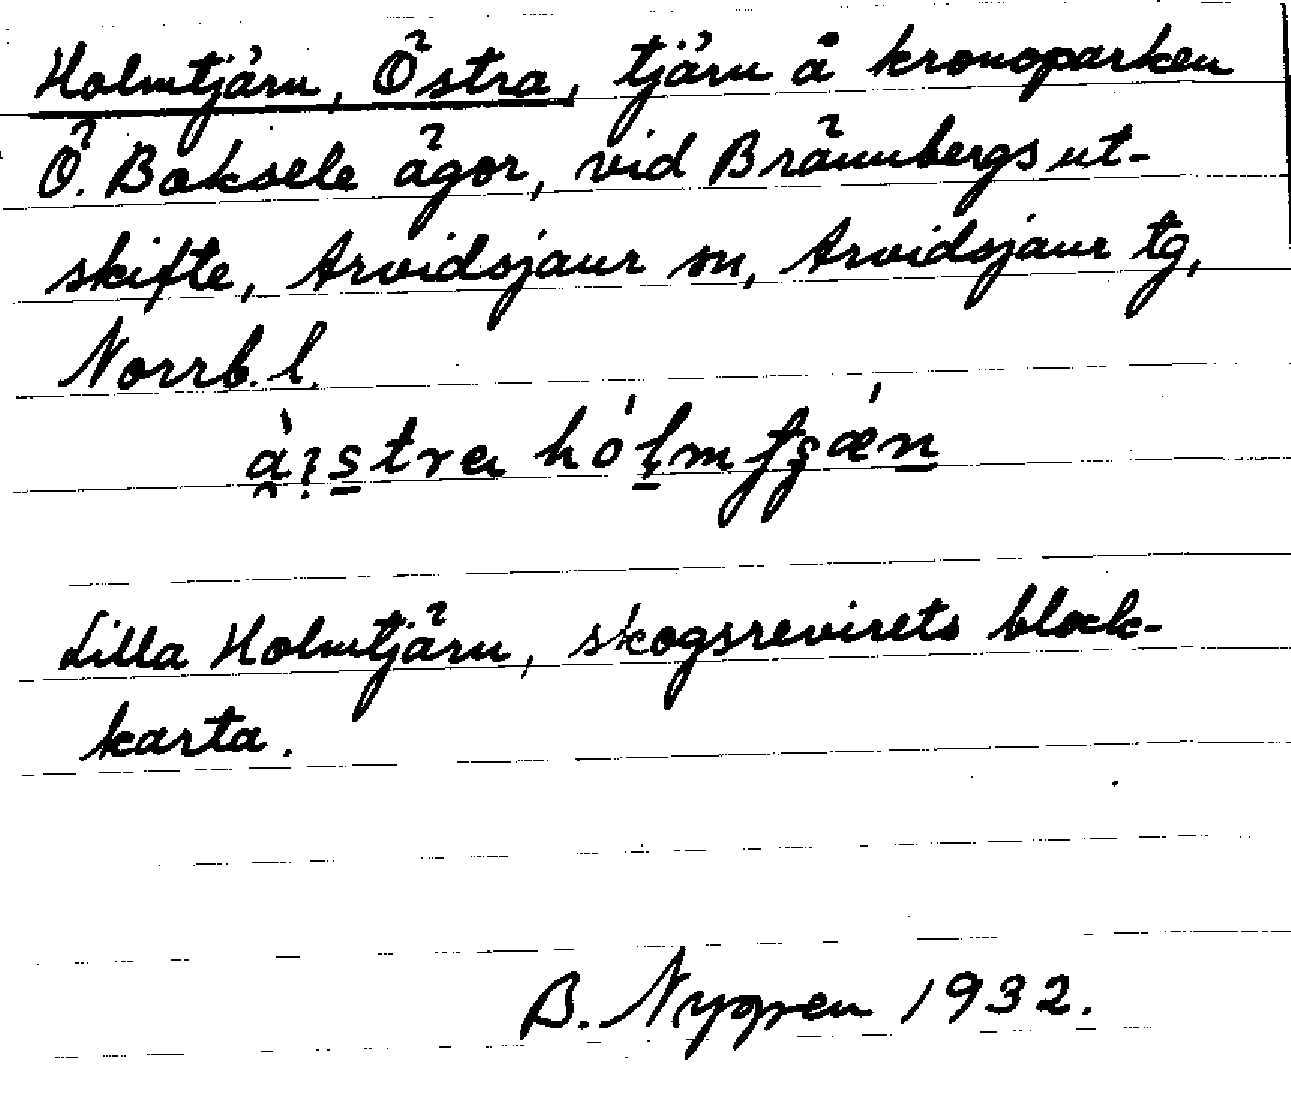 Holmtjärn, Östra, tjärn å kronoparken
Ö. Baksele ägor, vid Brännbergs ut-
skifte, Arvidsjaur sn, Arvidsjaur tg,
Norrb. l.
Lilla Holmtjärn, skogsrevirets block-
karta.
B. Nygren 1932.